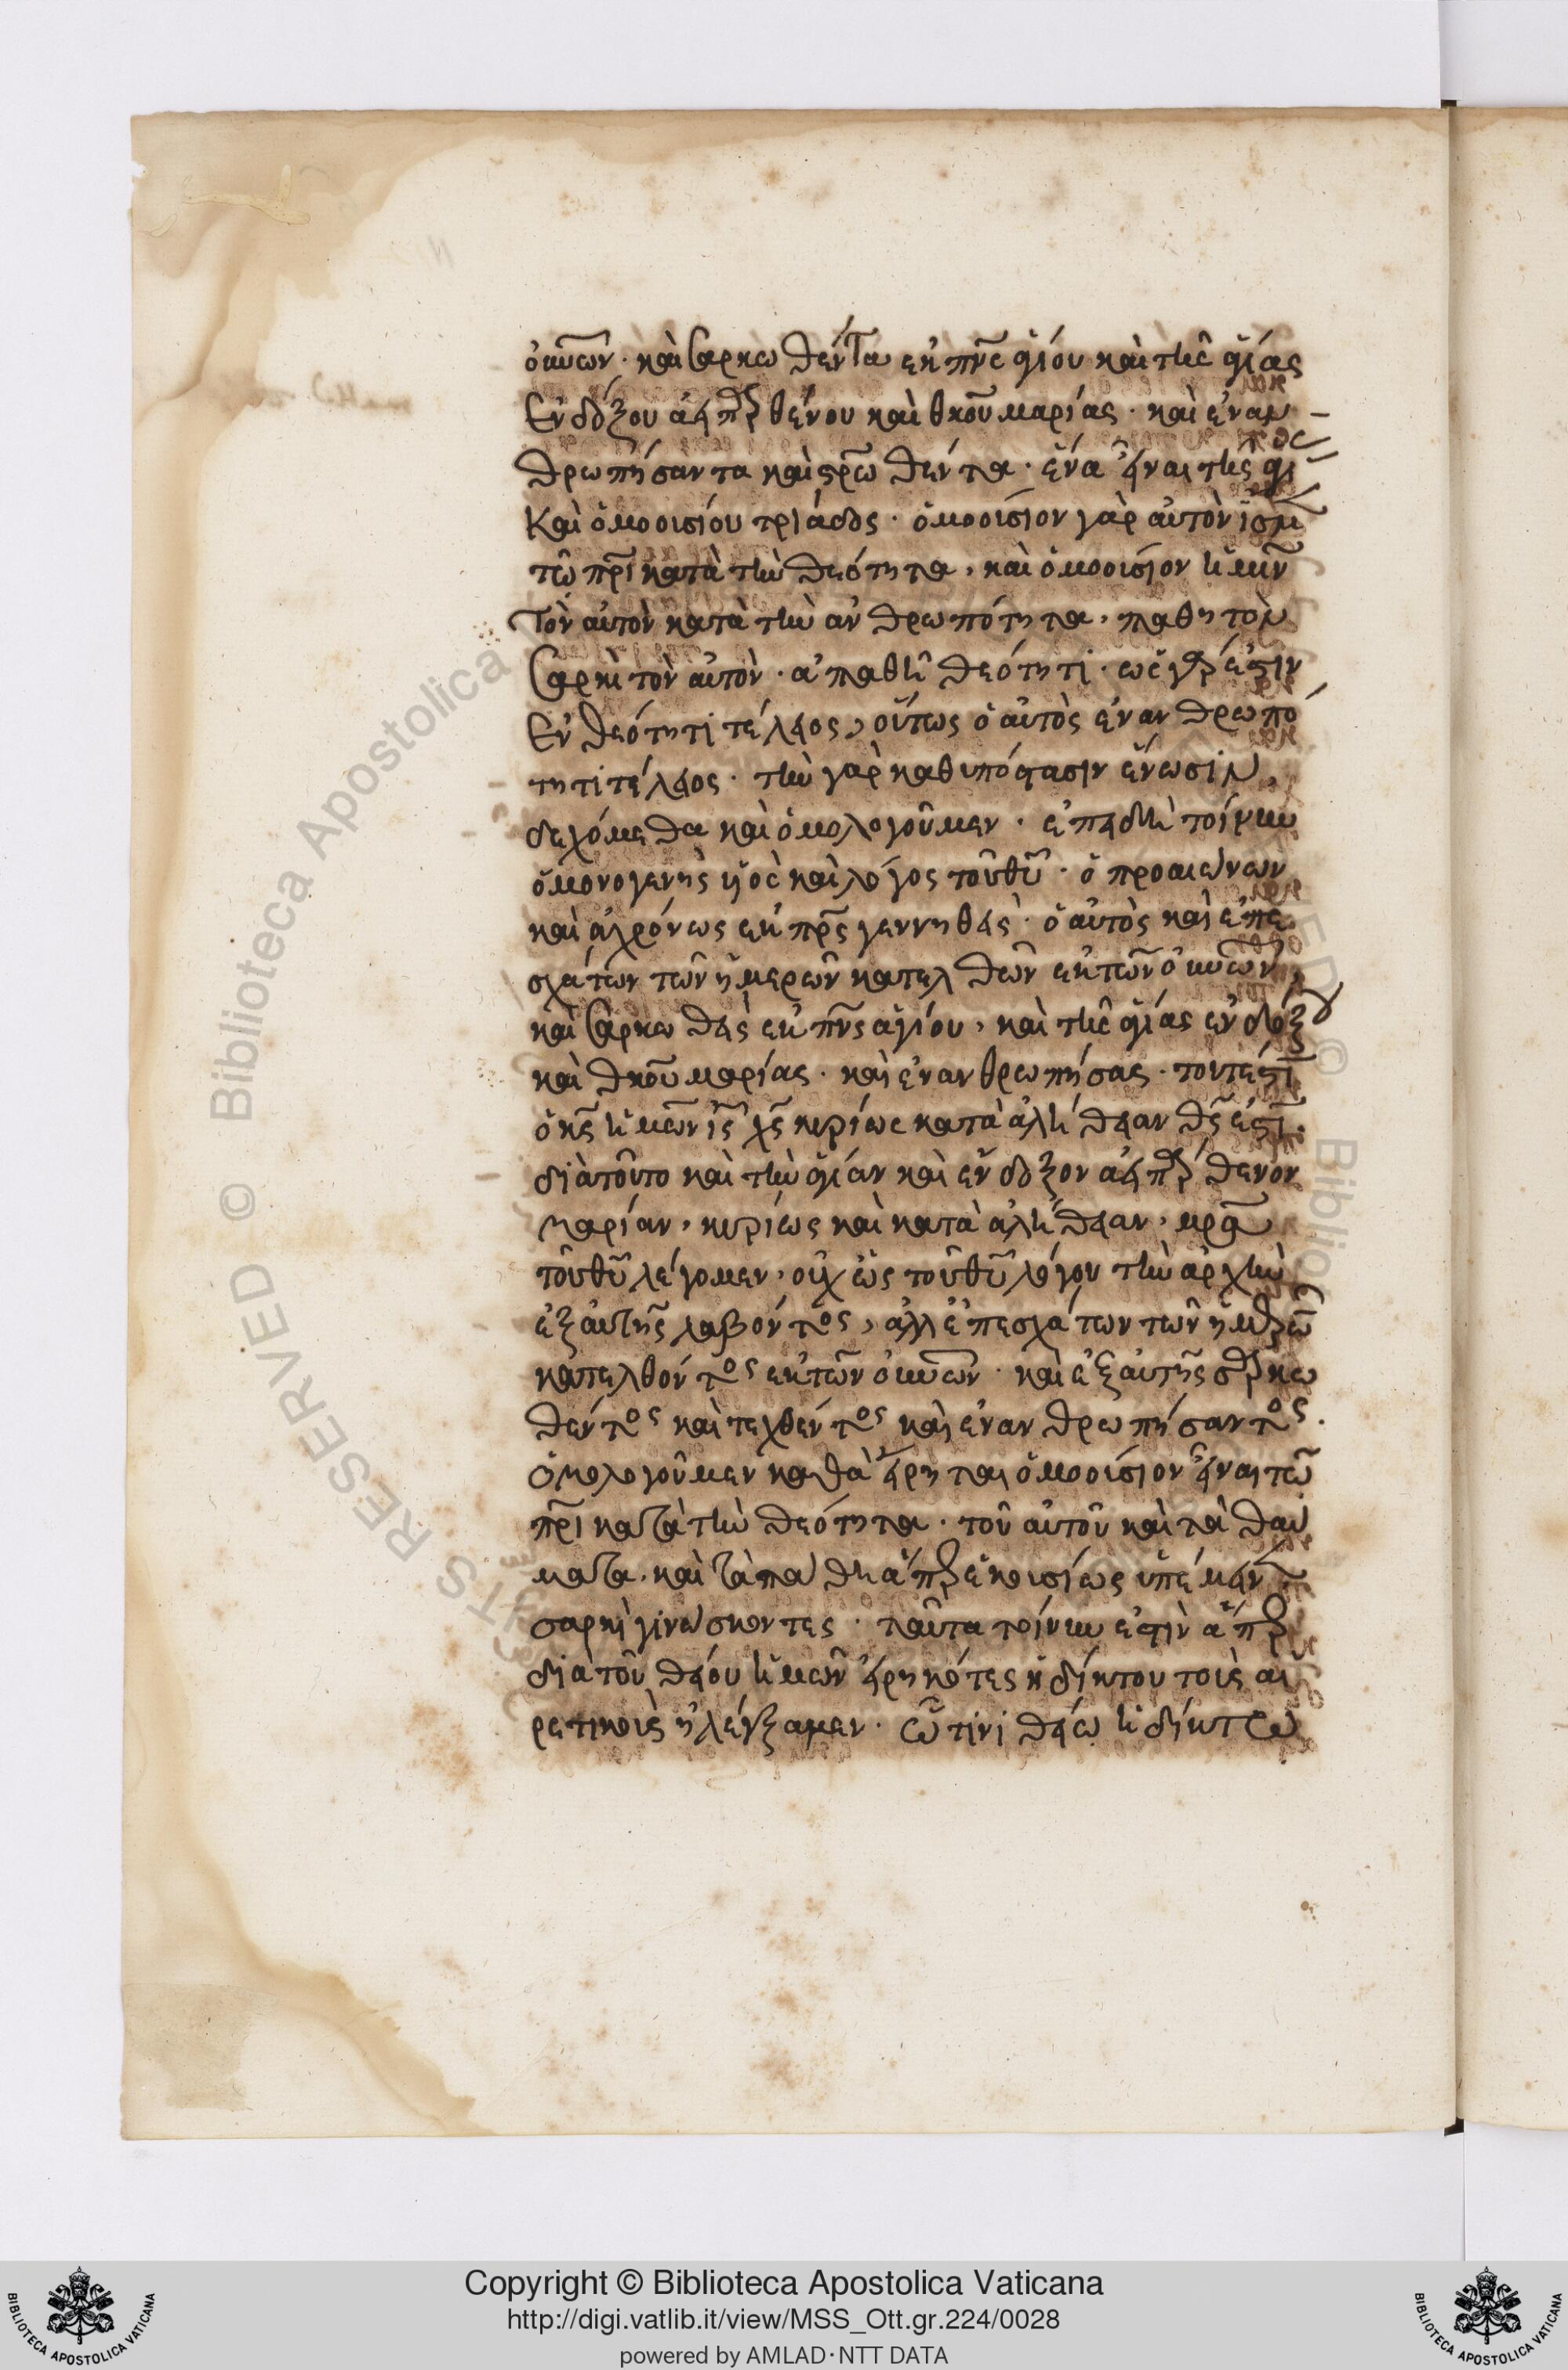 οὐνῶν· καὶ σαρκωθέντα ἐκ πνς ἁγίου καὶ τῆς ἁγίας
ἐνδόξου ἀειπαρθένου καὶ θκου μαρίας· καὶ ἐναν
θρωπήσαντα καὶ σρωθέντα· ἕνα εἶναι τῆς ἁγι
καὶ ὁμοουσίου τριάδος· ὁμοούσιον γὰρ αὐτὸν ἴσμ
τῶ πρι κατὰ τὴν θεότητα, καὶ ὁμοούσιον ἡμῖν
τὸν αὐτὸν κατὰ τὴν ἀνθρωπότητα, παθητὸν
σαρκὶ τὸν αὐτὸν· ἀπαθῆ θεότητι· ὡς γάρ ἐστιν
ἐν θεότητι τέλειος, οὕτως ὁ αὐτὸς ἐν ἀνθρωπό
τητι τέλειος· τὴν γὰρ καθυπόστασιν ἕνωσιν,
δεχόμεθα καὶ ὁμολογοῦμεν· ἐπειδὴ τοίνυν
ὁ μονογενὴς υἱὸς καὶ λόγος τοῦ θυ· ὁ προαιώνων
καὶ ἀχρόνως ἐκ πρς γεννηθεὶς· ὁ αὐτὸς καὶ ἐπ ἐ
σχάτων τῶν ἡμερῶν κατελθὼν ἐκ τῶν οὐνῶν,
καὶ σαρκωθεὶς ἐκ πνς ἁγίου, καὶ τῆς ἁγίας ἐνδόξου
καὶ θκου μαρίας· καὶ ἐνανθρωπήσας· τουτέστι
ὁ κς ἡμῶν ις χς κυρίως κατὰ ἀλήθειαν θς ἐστι·
διὰ τοῦτο καὶ τὴν ἁγίαν καὶ ἔνδοξον ἀειπάρθενον
μαρίαν, κυρίως καὶ κατὰ ἀλήθειαν, μρα
τοῦ θυ λέγομεν, οὐχ ὡς τοῦ θυ λόγου τὴν ἀρχὴν
ἐξ αὐτῆς λαβόντος, ἀλλ ἐπ ἐσχάτων τῶν ἡμερῶ
κατελθόντος ἐκ τῶν οὐνῶν· καὶ ἐξ αὐτῆς σαρκω
θέντος καὶ τεχθέντος καὶ ἐνανθρωπήσαντος.
ὁμολογοῦμεν καθὰ εἴρηται ὁμοούσιον εἶναι τῶ
πρι κατὰ τὴν θεότητα· τοῦ αὐτοῦ καὶ τὰ θαύ
ματα· καὶ τὰ πάθη ἅπερ ἑκουσίως ὑπέμεινε
σαρκὶ γινώσκοντες· ταῦτα τοίνυν ἐστὶν ἅπερ
διὰ τοῦ θείου ἡμῶν εἰρηκότες ἠδίκτου τοὺς αἱ
ρετικοὺς ἠλέγξαμεν· ὧτινι θείω ἠδίκτω
Copyright © Biblioteca Apostolica Vaticana
http://digi.vatlib.it/view/MSS_Ott.gr.224/0028
powered by AMLAD·NTT DATA